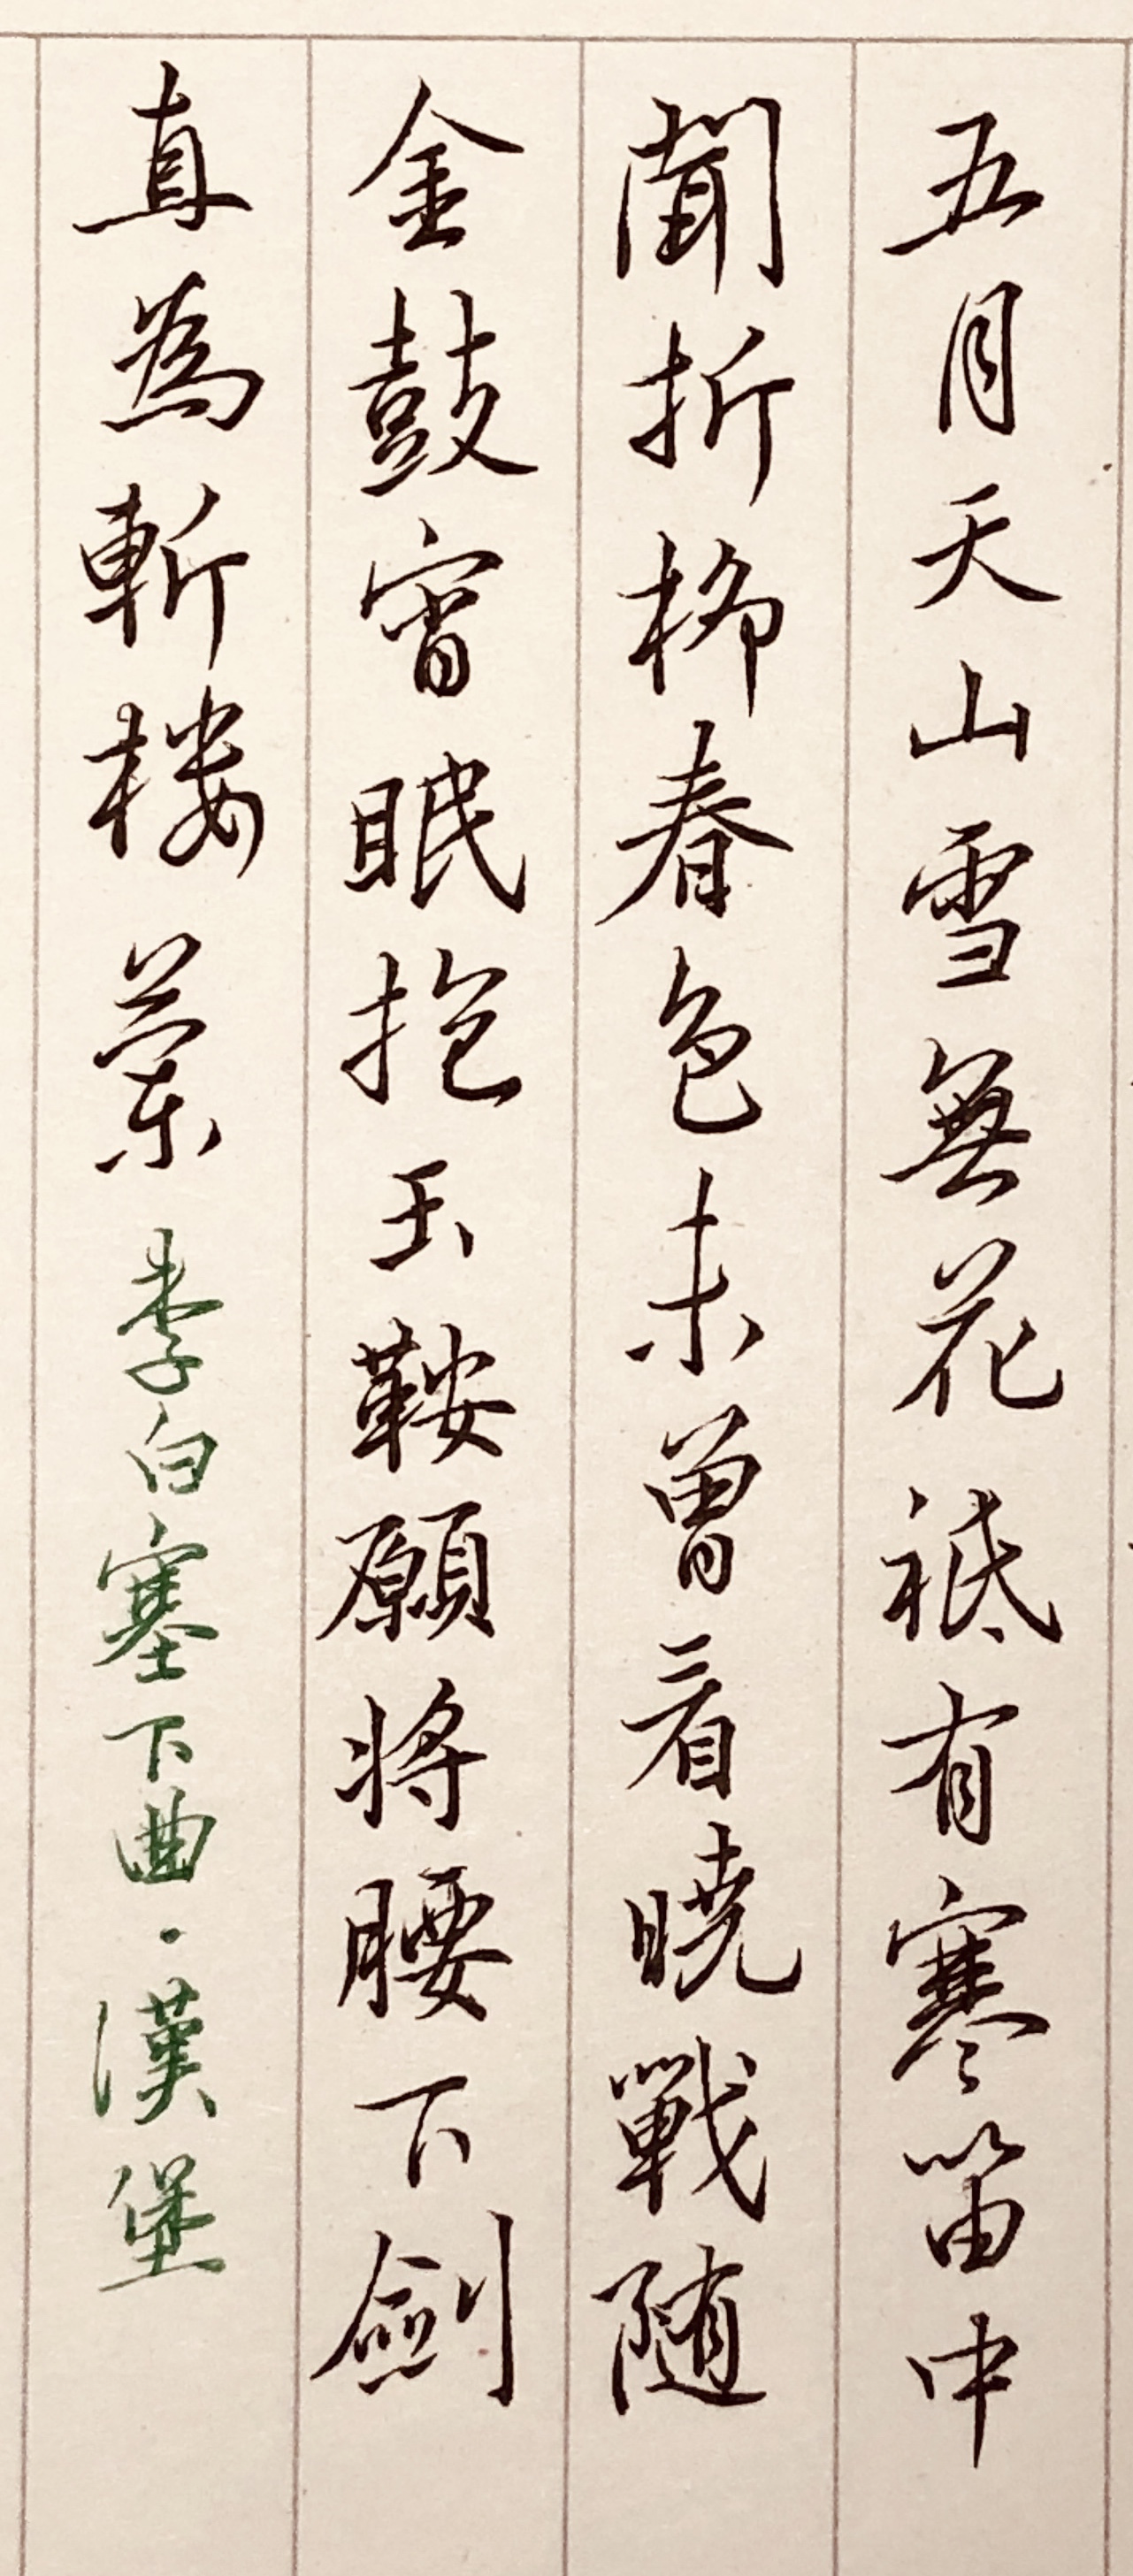 五月天山雪無花祗有寒笛中
聞折柳春色未曾看曉戰随
金鼓宵眠抱玉鞍願將腰下劍
直為斬楼蘭 李白塞下曲·漢堡